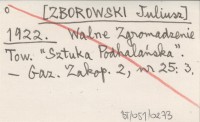 [ZBOROWSKI Juliusz]
1922. Walne Zgromadzenie
Tow. "Sztuka Podhalańska".
– Gaz. Zakop. 2, nr 25: 3.